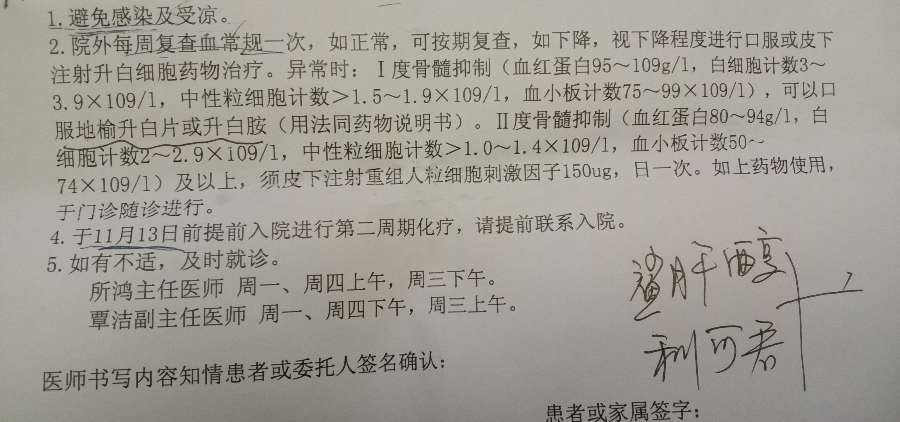 1.避免感染及受凉。
2.院外每周复查血常规一次，如正常，可按期复查，如下降，视下降程度进行口服或皮下
注射升白细胞药物治疗。异常时：Ⅰ度骨髓抑制（血红蛋白95～109g/l，白细胞计数3～
3.9×109/l，中性粒细胞计数＞1.5～1.9×109/l，血小板计数75～99×109/l），可以口
服地榆升白片或升白胺（用法同药物说明书）。Ⅱ度骨髓抑制（血红蛋白80～94g/l，白
细胞计数2～2.9×109/l，中性粒细胞计数＞1.0～1.4×109/l，血小板计数50～
74×109/l）及以上，须皮下注射重组人粒细胞刺激因子150ug，日一次。如上药物使用，
于门诊随诊进行。
4.于11月13日前提前入院进行第二周期化疗，请提前联系入院。
5.如有不适，及时就诊。
所鸿主任医师 周一、周四上午，周三下午。
覃洁副主任医师 周一、周四下午，周三上午。
鲨肝醇
利可君
医师书写内容知情患者或委托人签名确认：
患者或家属签字：